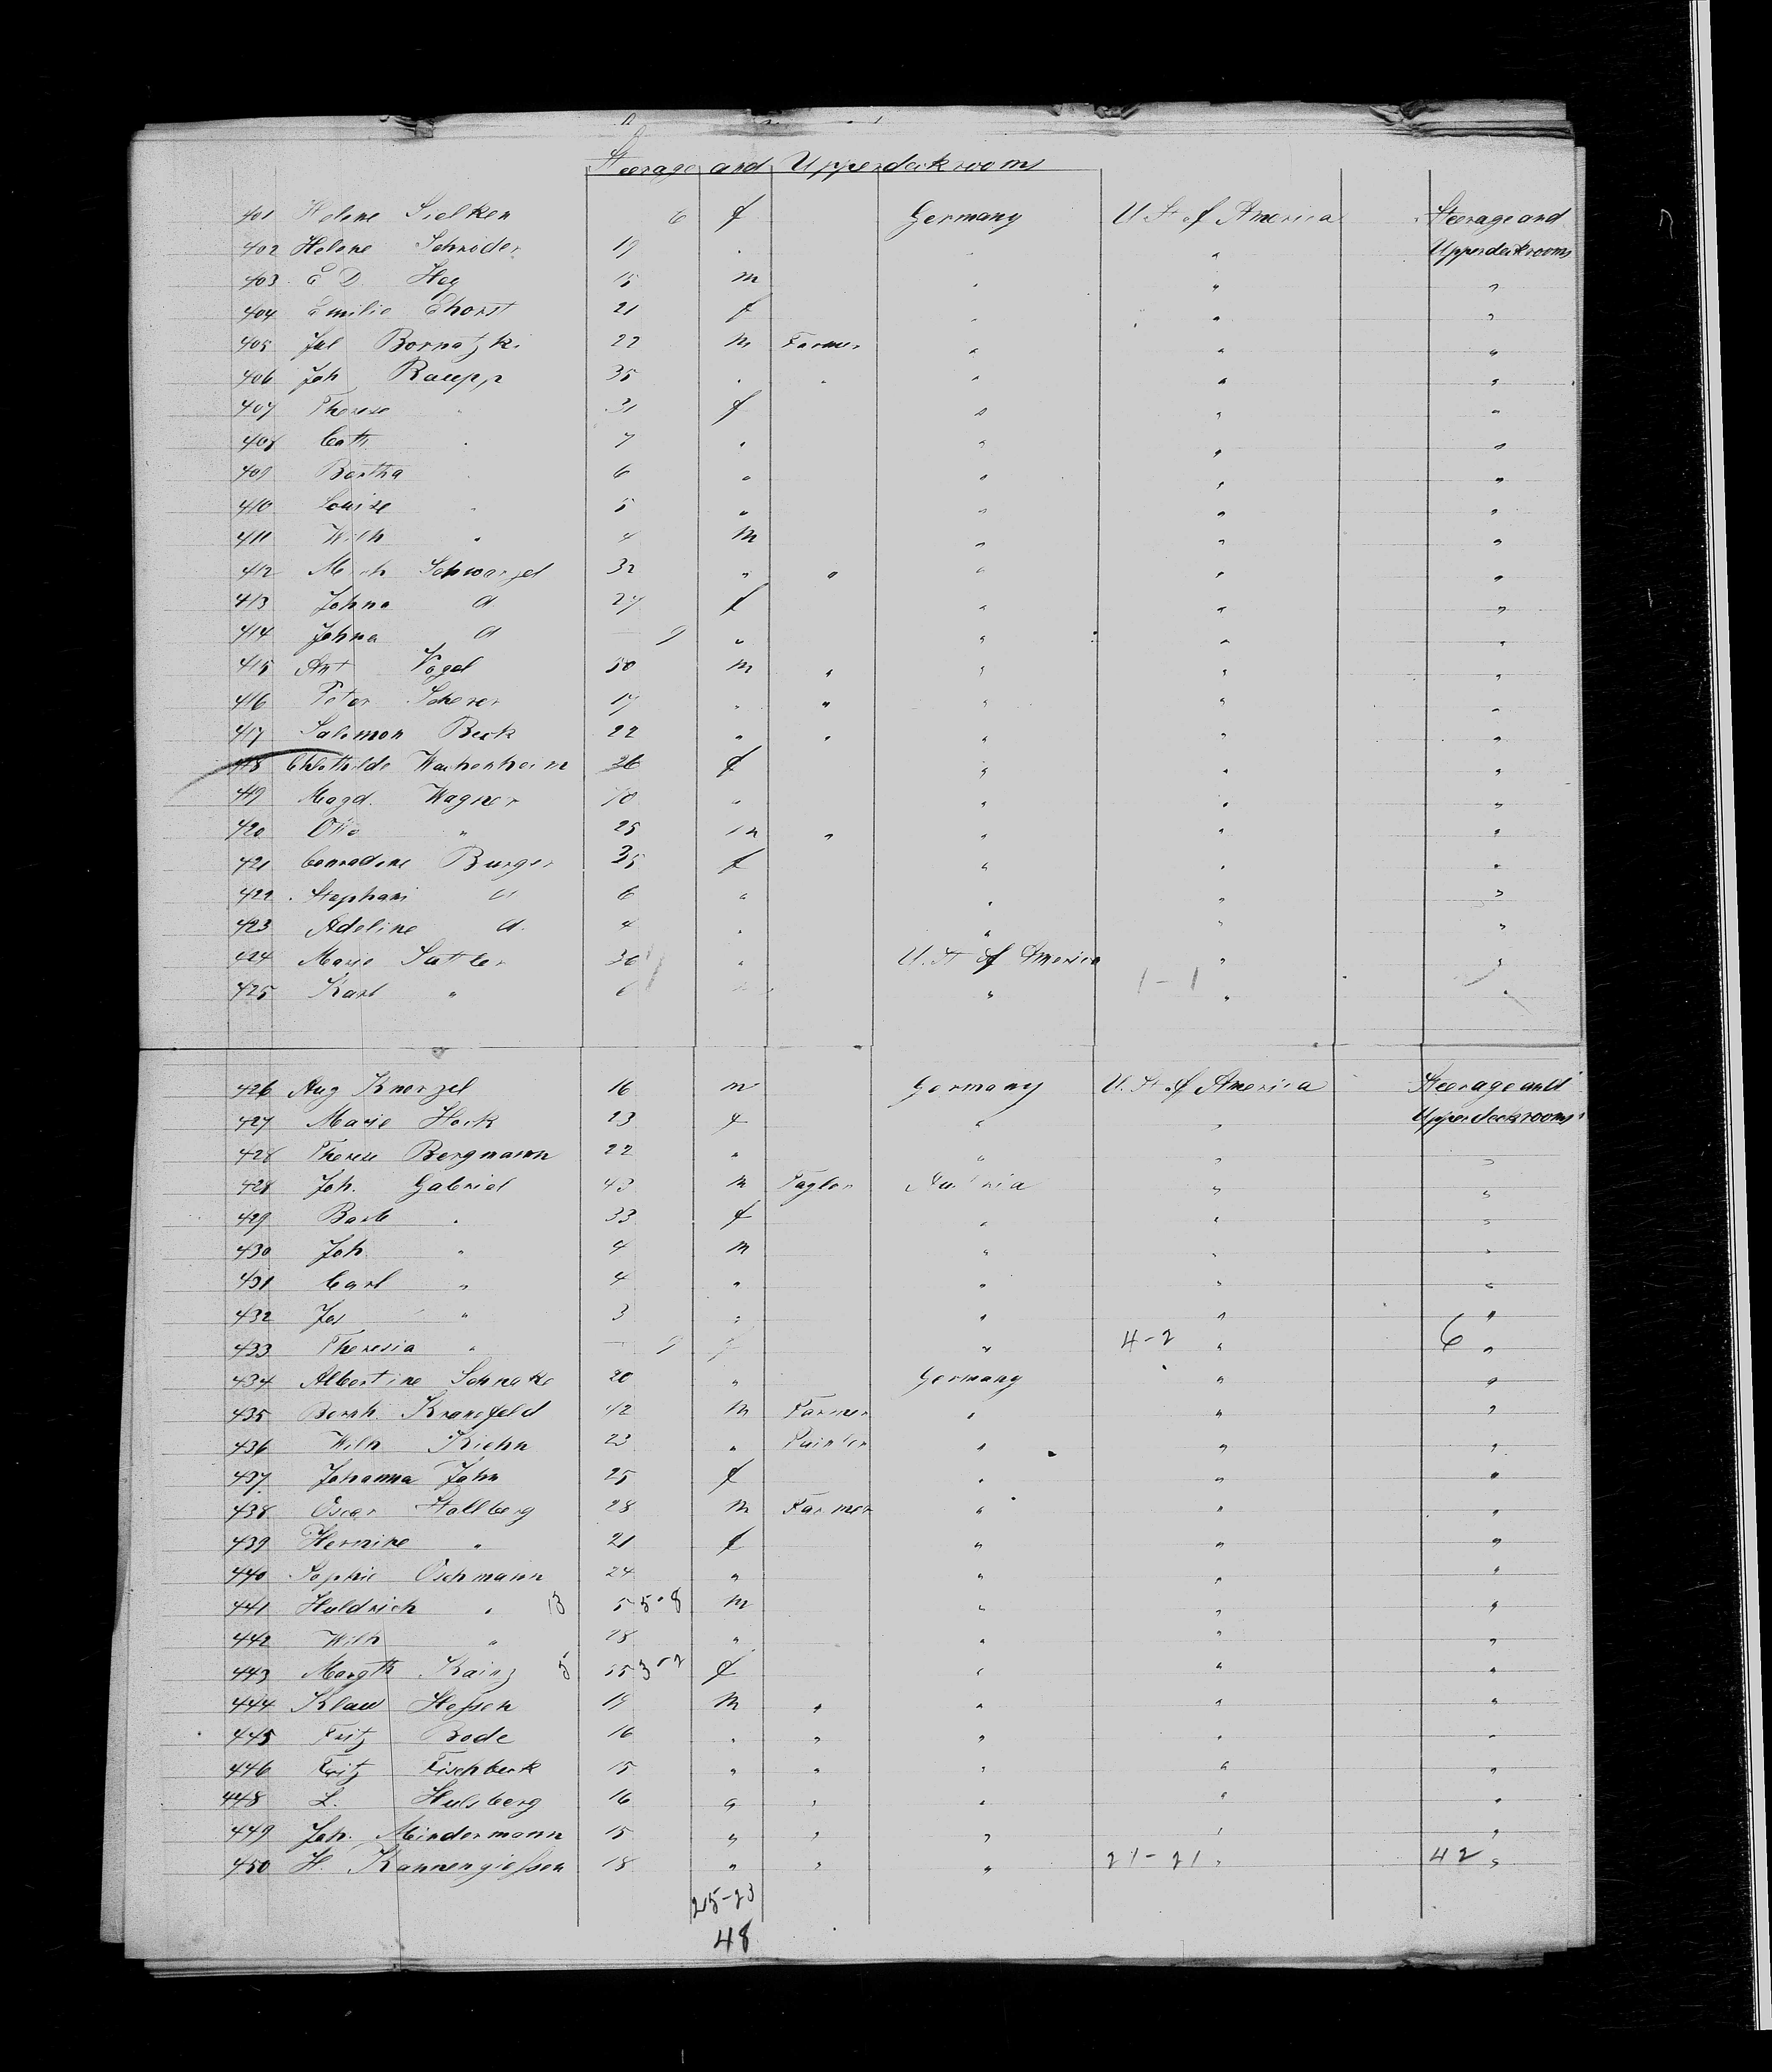 Steerage and Upperdeckrooms
401 Helene Sielken 6 f Germany U. St. of America Steerage and
402 Helene Schröder 19 " " " Upperdeckrooms
403 E D. Hey 15 m " " "
404 Emilie Ehorst 21 f " " "
405 Jul Bornatzki 22 m Farmer " " "
406 Joh Raupp 35 " " " " "
407 Therese " 31 f " " "
408 Cath " 7 " " " "
409 Bertha " 6 " " " "
410 Louise " 5 " " " "
411 Wilh " 4 m " " "
412 Mich Schwarzel 32 " " " " "
413 Johna d 27 f " " "
414 Johna d — 9 " " " "
415 Ant Vogel 50 m " " " "
416 Peter Scherer 17 " " " " "
417 Salomon Beck 22 " " " " "
418 Clothilde Wachenheim 26 f " " "
419 Magd. Wagner 70 " " " "
420 Otto " 25 m " " " "
421 Conradine Burger 35 f " " "
422 Stephani d 6 " " " "
423 Adeline d. 4 " " " "
424 Marie Sattler 36 " U. St of America " "
425 Karl " 6 " 1-1 " "
426 Aug Knorzel 16 m Germany U. St. of America Steerage and
427 Marie Hock 23 f " " Upperdeckrooms
428 Therese Bergmann 22 " " " "
428 Joh. Gabriel 43 m Taylor Austria " "
429 Barb " 33 f " " "
430 Joh " 4 m " " "
431 Carl " 4 " " " "
432 Jos " 3 " " " "
433 Theresia " — 9 f " 4-2 " 6 "
434 Albertine Schnake 20 " Germany " "
435 Bernh. Kransfeld 42 m Farmer " " "
436 Wilh Kiehn 23 " Painter " " "
437 Johanna Jahn 25 f " " "
438 Oscar Stallberg 28 m Farmer " " "
439 Hermine " 21 f " " "
440 Sophie Oschmann 24 " " " "
441 Huldrich " 13 5 5-8 m " " "
442 Wilh " 28 " " " "
443 Margth Kainz 5 55 3-2 f " " "
444 Klaus Hessen 19 m " " " "
445 Fritz Bode 16 " " " " "
446 Fritz Fischbeck 15 " " " " "
448 L. Hulsberg 16 " " " " "
449 Joh. Mindermann 15 " " " " "
450 H. Kannengiesser 18 " " " 21-21 " 42 "
25-23
48